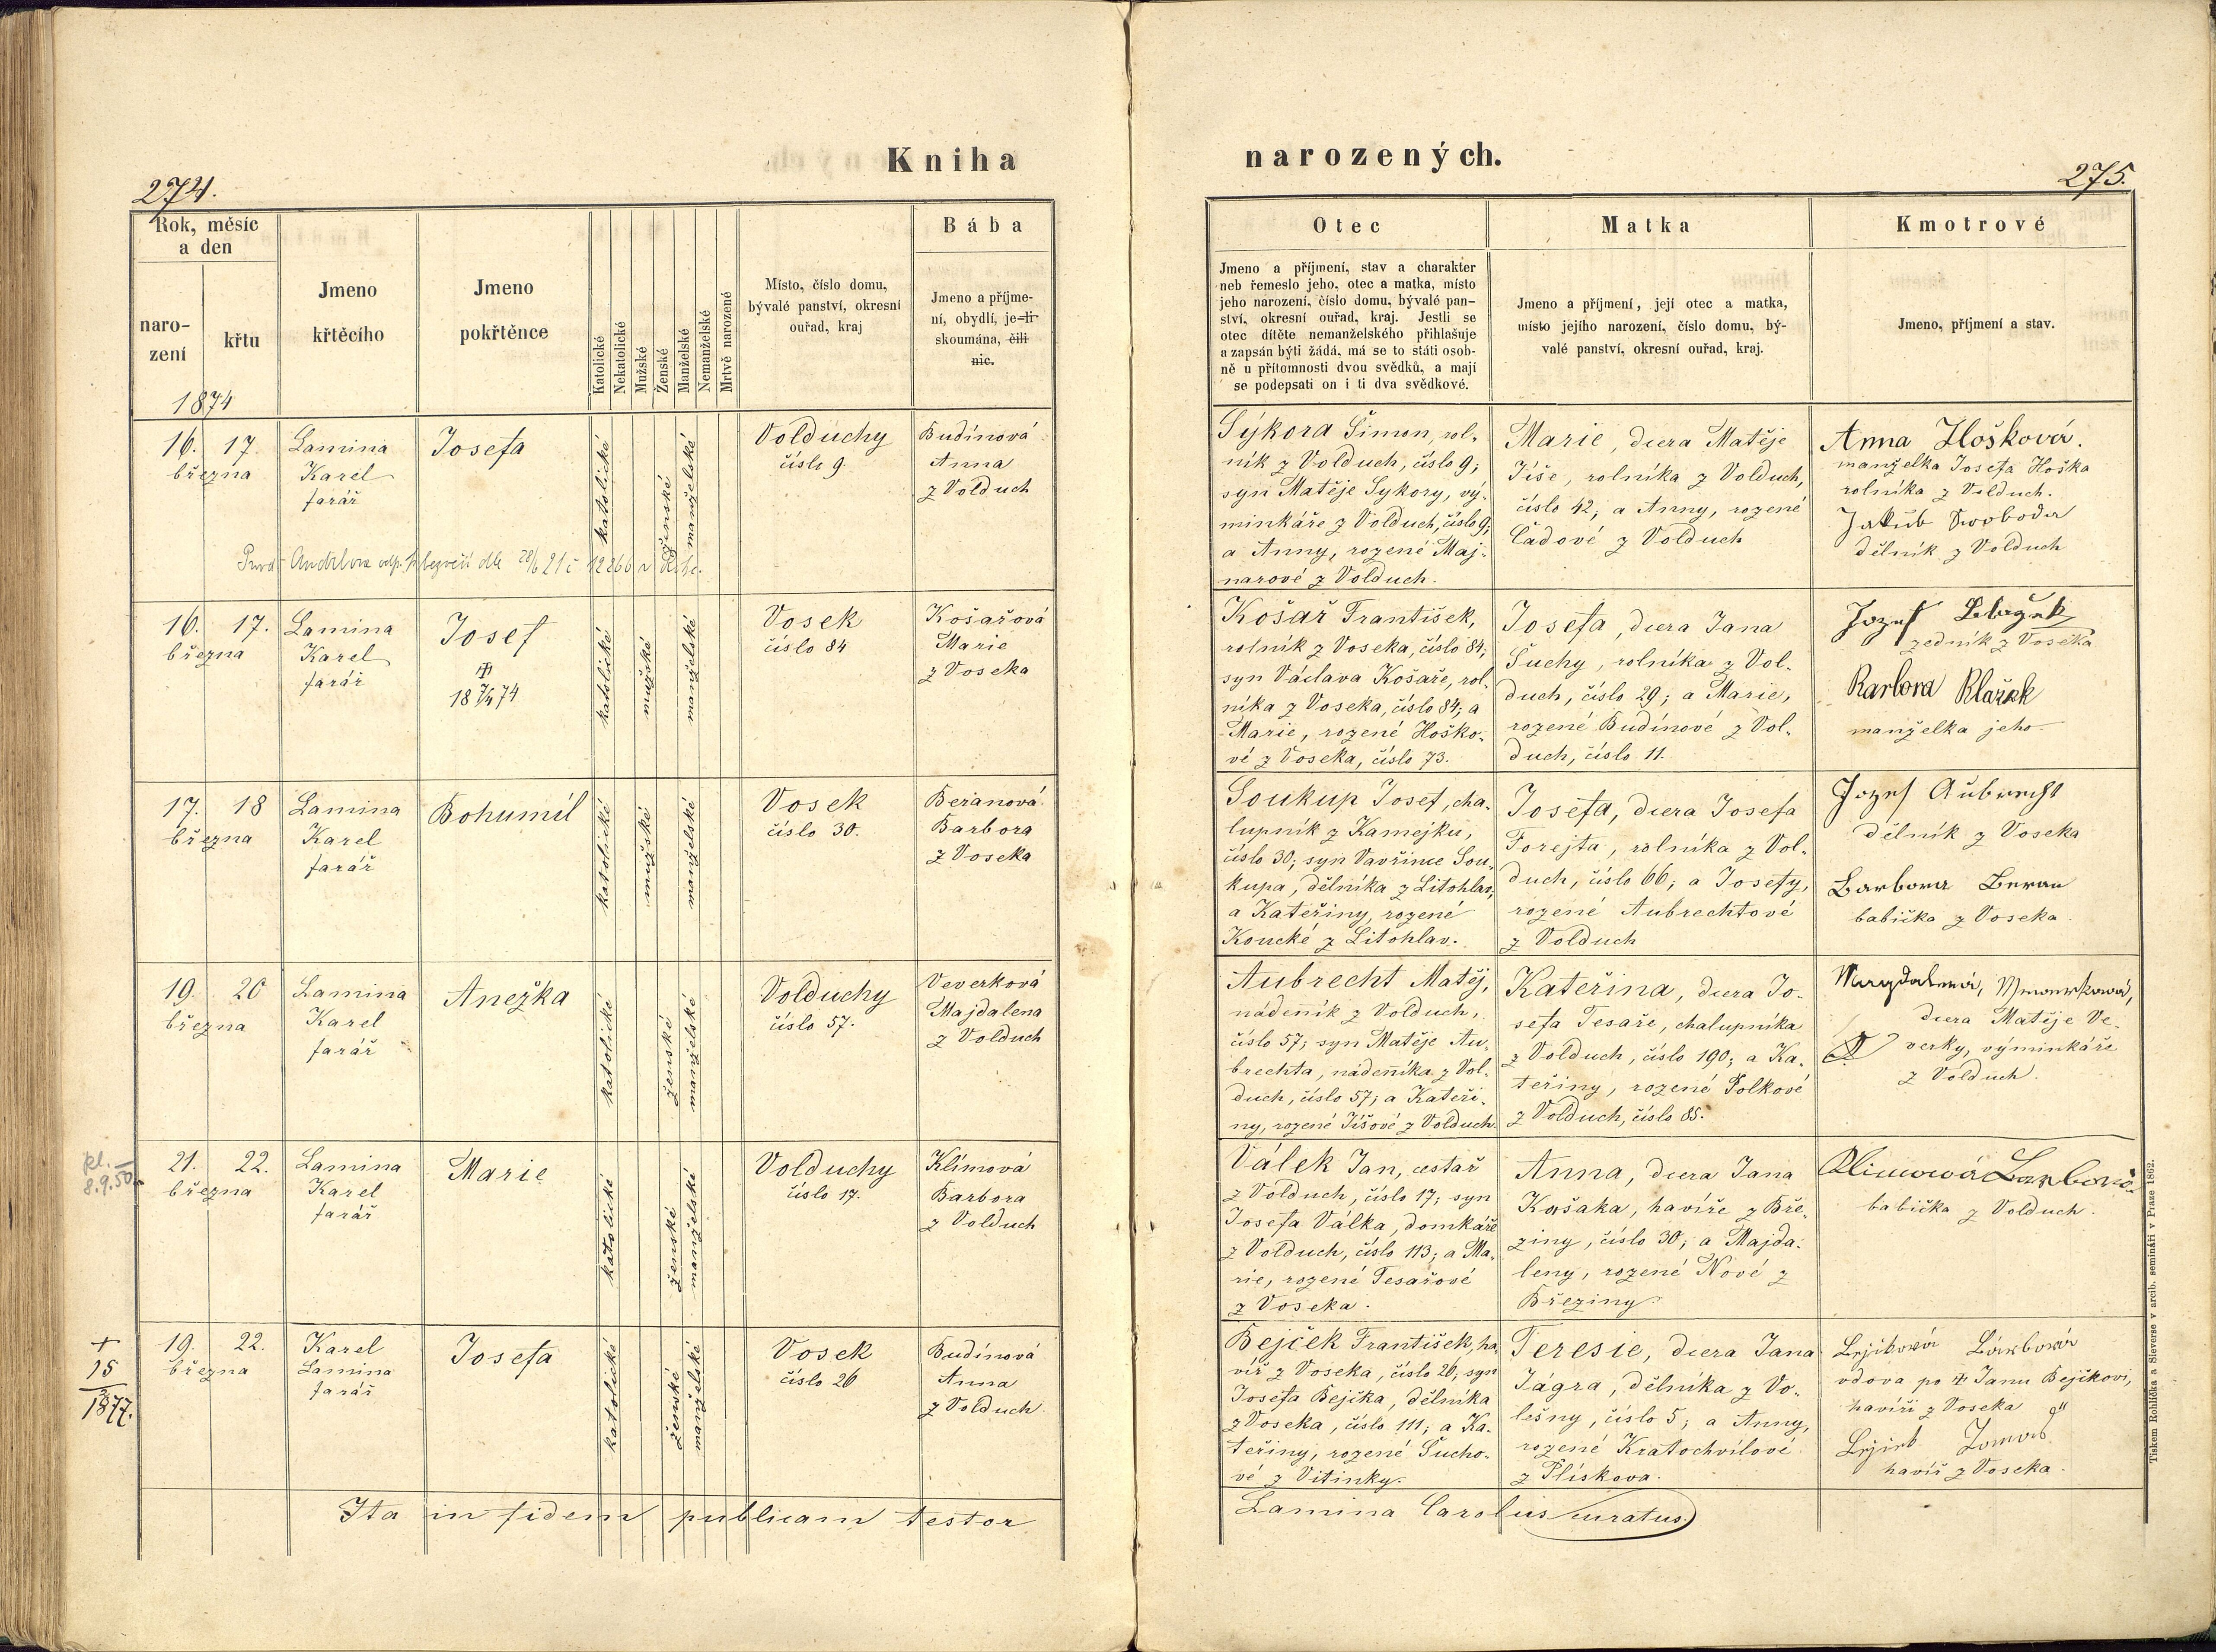 Kniha
narozených.
274.
275.
Rok, měsíc
a den
naro-
zení
křtu
1874
Jmeno
křtěcího
Jmeno
pokřtěnce
Katolické
Nekatolické
Mužské
Ženské
Manželské
Nemanželské
Mrtvě narozené
Místo, číslo domu,
bývalé panství, okresní
ouřad, kraj
Bába
Jmeno a příjme-
ní, obydlí, je-li
skoumána, čili
nic.
Otec
Jmeno a příjmení, stav a charakter
neb řemeslo jeho, otec a matka, místo
jeho narození, číslo domu, bývalé pan-
ství, okresní ouřad, kraj. Jestli se
otec dítěte nemanželského přihlašuje
a zapsán býti žádá, má se to státi osob-
ně u přítomnosti dvou svědků, a mají
se podepsati on i ti dva svědkové.
Matka
Jmeno a příjmení, její otec a matka,
místo jejího narození, číslo domu, bý-
valé panství, okresní ouřad, kraj.
Kmotrové
Jmeno, příjmení a stav.
16. 17.
března
Lamina
Karel
farář
Josefa
katolické
ženské
manželské
Volduchy
číslo 9.
Budínová
Anna
z Volduch
Sýkora Šimon, rol-
ník z Volduch, číslo 9;
syn Matěje Sýkory, vý-
minkáře z Volduch, číslo 9;
a Anny, rozené Maj-
narové z Volduch.
Marie, dcera Matěje
Jíše, rolníka z Volduch,
číslo 42; a Anny, rozené
Čadové z Volduch
Anna Hošková.
manželka Josefa Hoška
rolníka z Volduch.
Jakub Swoboda
dělník z Volduch
16. 17.
března
Lamina
Karel
farář
Josef
18 7/4 74
katolické
mužské
manželské
Vosek
číslo 84
Košařová
Marie
z Voseka
Košař František,
rolník z Voseka, číslo 84;
syn Václava Košaře, rol-
níka z Voseka, číslo 84; a
Marie, rozené Hoško-
vé z Voseka, číslo 73.
Josefa, dcera Jana
Suchy, rolníka z Vol-
duch, číslo 29; a Marie,
rozené Budínové z Vol-
duch, číslo 11.
Jozef Blažek
zedník z Voseka
Barbora Blažek
manželka jeho
17. 18
března
Lamina
Karel
farář
Bohumil
katolické
mužské
manželské
Vosek
číslo 30.
Beranová
Barbora
z Voseka
Soukup Josef, cha-
lupník z Kamejku,
číslo 30; syn Vavřince Sou-
kupa, dělníka z Litohlav,
a Kateřiny, rozené
Koucké z Litohlav.
Josefa, dcera Josefa
Forejta, rolníka z Vol-
duch, číslo 66; a Josefy,
rozené Aubrechtové
z Volduch
Jozef Aubrecht
dělník z Voseka
Barbora Beran
babička z Voseka
19. 20
března
Lamina
Karel
farář
Anežka
katolické
ženské
manželské
Volduchy
číslo 57.
Veverková
Majdalena
z Volduch
Aubrecht Matěj,
nádenník z Volduch,
číslo 57; syn Matěje Au-
brechta, nádenníka z Vol-
duch, číslo 57; a Kateři-
ny, rozené Jíšové z Volduch.
Kateřina, dcera Jo-
sefa Tesaře, chalupníka
z Volduch, číslo 190; a Ka-
teřiny, rozené Polkové
z Volduch, číslo 85.
dcera Matěje Ve-
verky, výminkáře
z Volduch.
8.9.50
21. 22.
března
Lamina
Karel
farář
Marie
katolické
ženské
manželské
Volduchy
číslo 17.
Klímová
Barbora
z Volduch
Válek Jan, cestař
z Volduch, číslo 17; syn
Josefa Válka, domkáře
z Volduch, číslo 113; a Ma-
rie, rozené Tesařové
z Voseka.
Anna, dcera Jana
Kašaka, havíře z Bře-
ziny, číslo 30; a Majda-
leny, rozené Nové z
Březiny.
Klimowá Barbora
babička z Volduch.
+
15
3
1877.
19. 22.
března
Karel
Lamina
farář
Josefa
katolické
ženské
manželské
Vosek
číslo 26
Budínová
Anna
z Volduch
Bejček František, ha-
víř z Voseka, číslo 26; syn
Josefa Bejčka, dělníka
z Voseka, číslo 111; a Ka-
teřiny, rozené Sucho-
vé z Vitinky.
Teresie, dcera Jana
Jágra, dělníka z Vo-
lešny, číslo 5; a Anny,
rozené Kratochvílové
z Plískova.
vdova po Janu Bejčkovi,
havíři z Voseka
havíř z Voseka.
Ita in fidem publicam testor
Lamina Carolus curatus.
Tiskem Rohlíčka a Sieverse v arcib. semináři v Praze 1862.